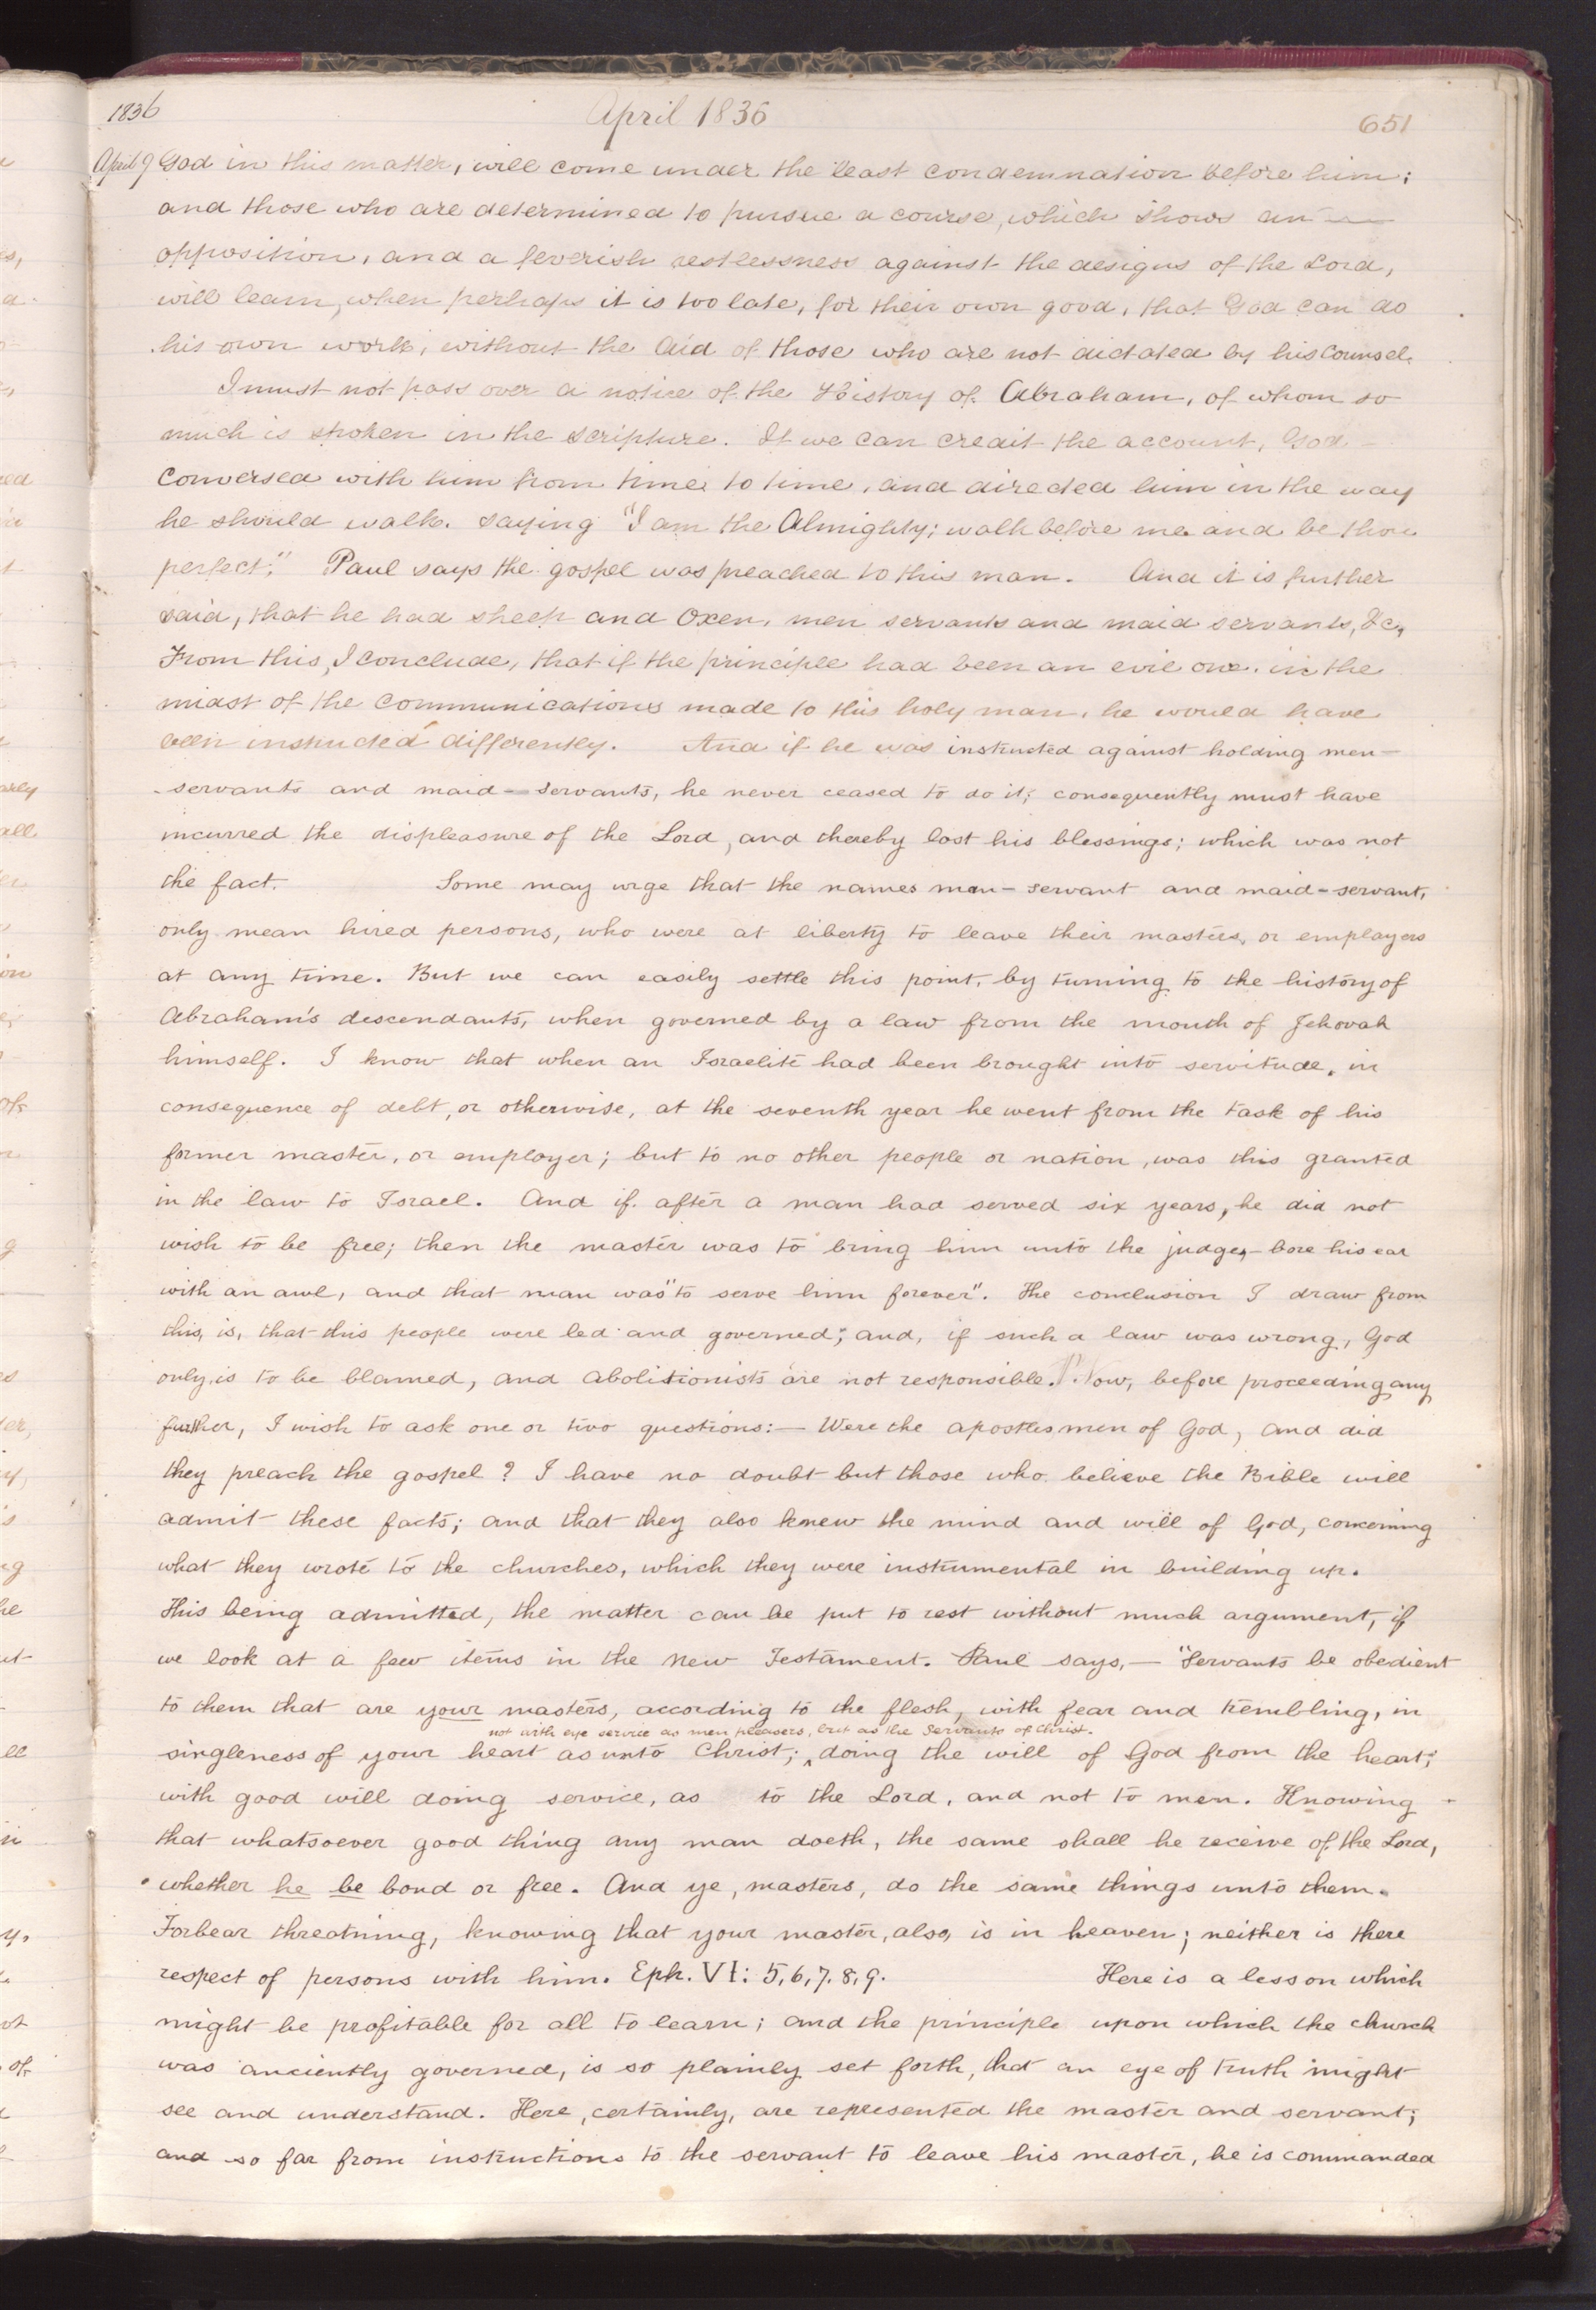 1836 April 1836 651
April 9 God in this matter, will come under the least condemnation before him;
and those who are determined to pursue a course, which shows an —
opposition, and a feverish restlessness against the designs of the Lord,
will learn, when perhaps it is too late, for their own good, that God can do
his own work, without the aid of those who are not dictated by his counsel.
I must not pass over a notice of the History of Abraham, of whom so
much is spoken in the scripture. If we can credit the account, God —
conversed with him from time to time, and directed him in the way
he should walk. saying "I am the Almighty; walk before me and be thou
perfect." Paul says the gospel was preached to this man. And it is further
said, that he had sheep and oxen, men servants and maid servants, &c,
From this, I conclude, that if the principle had been an evil one. in the
midst of the communications made to this holy man, he would have
been instructed differently. And if he was instructed against holding men-
servants and maid-servants, he never ceased to do it; consequently must have
incurred the displeasure of the Lord, and thereby lost his blessings; which was not
the fact. Some may urge that the names man-servant and maid-servant,
only mean hired persons, who were at liberty to leave their masters, or employers
at any time. But we can easily settle this point, by turning to the history of
Abraham's descendants, when governed by a law from the mouth of Jehovah
himself. I know that when an Israelite had been brought into servitude, in
consequence of debt, or otherwise, at the seventh year he went from the task of his
former master, or employer; but to no other people or nation, was this granted
in the law to Israel. And if after a man had served six years, he did not
wish to be free; then the master was to bring him unto the judges,- bore his ear
with an awl, and that man was "to serve him forever". The conclusion I draw from
this, is, that this people were led and governed; and, if such a law was wrong, God
only, is to be blamed, and abolitionists are not responsible. ¶ Now, before proceeding any
further, I wish to ask one or two questions:— Were the apostles men of God, and did
they preach the gospel? I have no doubt but those who believe the Bible will
admit these facts; and that they also knew the mind and will of God, concerning
what they wrote to the churches, which they were instrumental in building up.
This being admitted, the matter can be put to rest without much argument, if
we look at a few items in the New Testament. Paul says,— "Servants be obedient
to them that are your masters, according to the flesh, with fear and trembling, in
not with eye service as men pleasers, but as the Servants of Christ.
singleness of your heart as unto Christ; ^ doing the will of God from the heart;
with good will doing service, as to the Lord, and not to men. Knowing
that whatsoever good thing any man doeth, the same shall he receive of the Lord,
whether he be bond or free. And ye, masters, do the same things unto them.
Forbear threatning, knowing that your master, also, is in heaven; neither is there
respect of persons with him. Eph. VI: 5,6,7.8,9. Here is a lesson which
might be profitable for all to learn; and the principle upon which the church
was anciently governed, is so plainly set forth, that an eye of truth might
see and understand. Here, certainly, are represented the master and servant;
and so far from instructions to the servant to leave his master, he is commanded